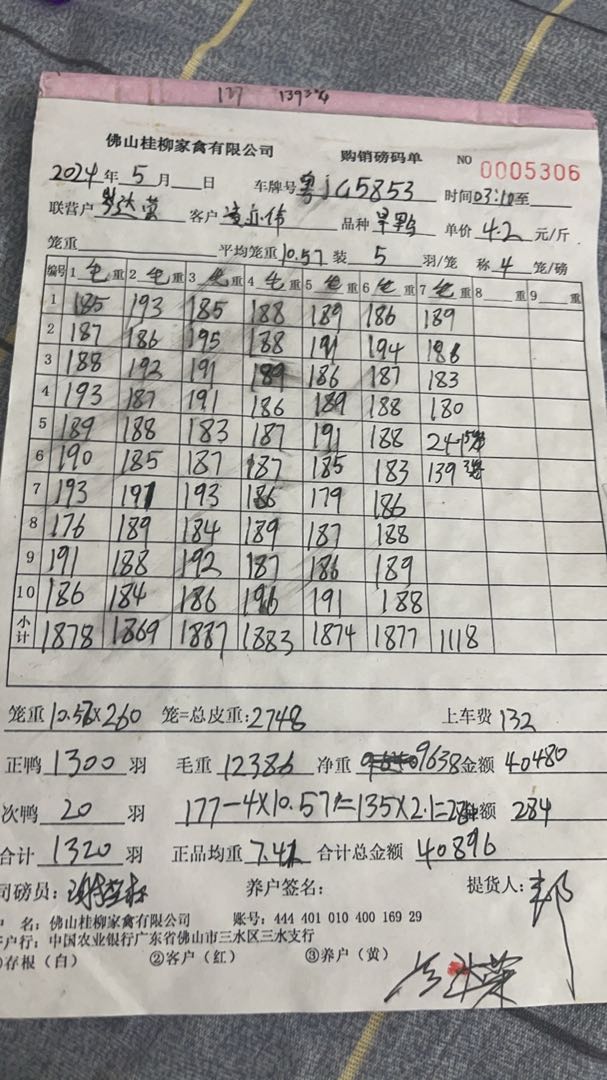 127 139 3
佛山桂柳家禽有限公司 购销磅码单 NO 0005306
2024年5月 日 车牌号 粤J G5853 时间03:10至
联营户 客户 品种 早鸭 单价 4.2 元/斤
笼重 平均笼重10.57装 5 羽/笼 称 4 笼/磅
编号 1 毛重 2 毛重 3 毛重 4 毛重 5 毛重 6 毛重 7 毛重 8 重 9 重
1 185 193 185 188 189 186 189
2 187 186 195 188 191 194 186
3 188 192 191 189 186 187 183
4 193 187 191 186 189 188 180
5 189 188 183 187 191 188 241
6 190 185 187 187 185 183 139
7 193 191 193 186 179 186
8 176 189 184 189 187 188
9 191 188 192 187 186 189
10 186 184 186 196 191 188
小计 1878 1869 1887 1883 1874 1877 1118
笼重10.57X260 笼=总皮重:2748 上车费 132
正鸭 1300 羽 毛重 12386 净重 9638金额 40480
次鸭 20 羽 177-4X10.57=135X2.1=284额 284
合计 1320 羽 正品均重 7.41 合计总金额 40896
司磅员: 养户签名: 提货人:
户 名:佛山桂柳家禽有限公司 账号:444 401 010 400 169 29
客户行:中国农业银行广东省佛山市三水区三水支行
存根(白) ②客户(红) ③养户(黄)